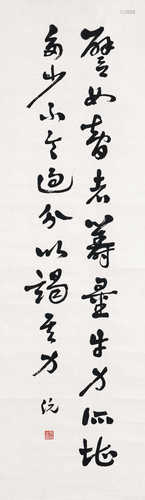 譬如智者籌量牛力所堪
多少不令過分以竭其力